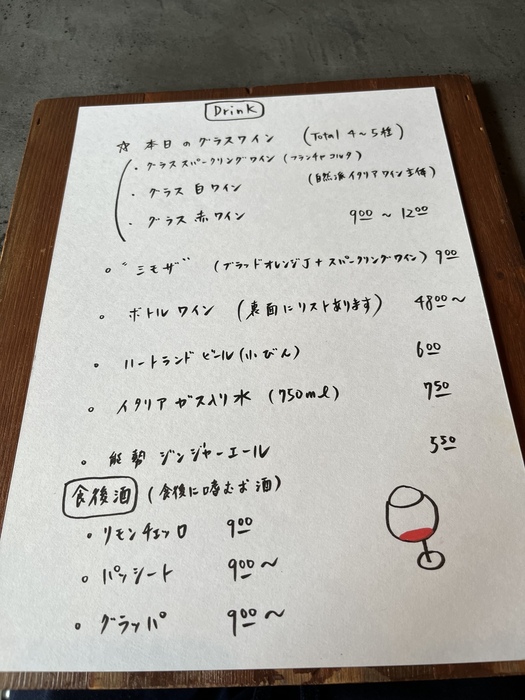 Drink
☆ 本日のグラスワイン (Total 4〜5種)
・グラススパークリングワイン (フランチャコルタ)
・グラス白ワイン (自然派イタリアワイン主体)
・グラス赤ワイン 900 〜 1200
。"ミモザ" (ブラッドオレンジJ+スパークリングワイン) 900
。ボトルワイン (裏面にリストあります) 4800〜
。ハートランドビール(小びん) 600
。イタリアガス入り水 (750ml) 750
。能勢ジンジャーエール 550
食後酒 (食後に嗜むお酒)
。リモンチェッロ 900
。パッシート 900〜
。グラッパ 900〜